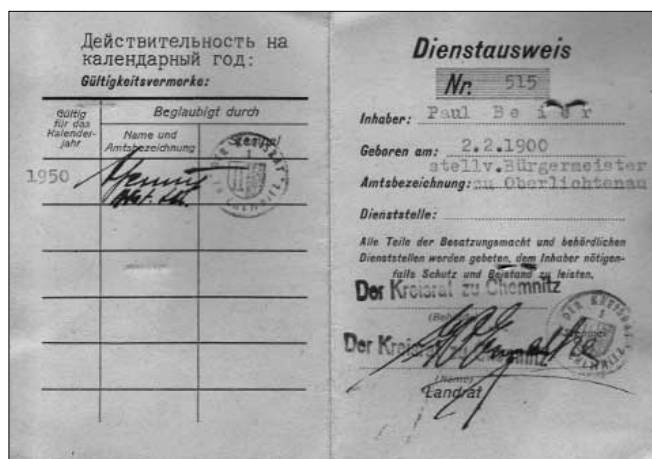 Действительность на
календарный год:
Gültigkeitsvermerke:
Gültig
für das
Kalender-
jahr
Beglaubigt durch
Name und
Amtsbezeichnung
Siegel
1950
Dienstausweis
Nr. 515
Inhaber: Paul Beier
Geboren am: 2.2.1900
stellv.Bürgermeister
Amtsbezeichnung: zu Oberlichtenau
Dienststelle:
Alle Teile der Besatzungsmacht und behördlichen
Dienststellen werden gebeten, dem Inhaber nötigen-
falls Schutz und Beistand zu leisten.
Der Kreisrat zu Chemnitz
Der Kreisrat zu Chemnitz
(Name)
Landrat
DER KREISRAT
ZU CHEMNITZ